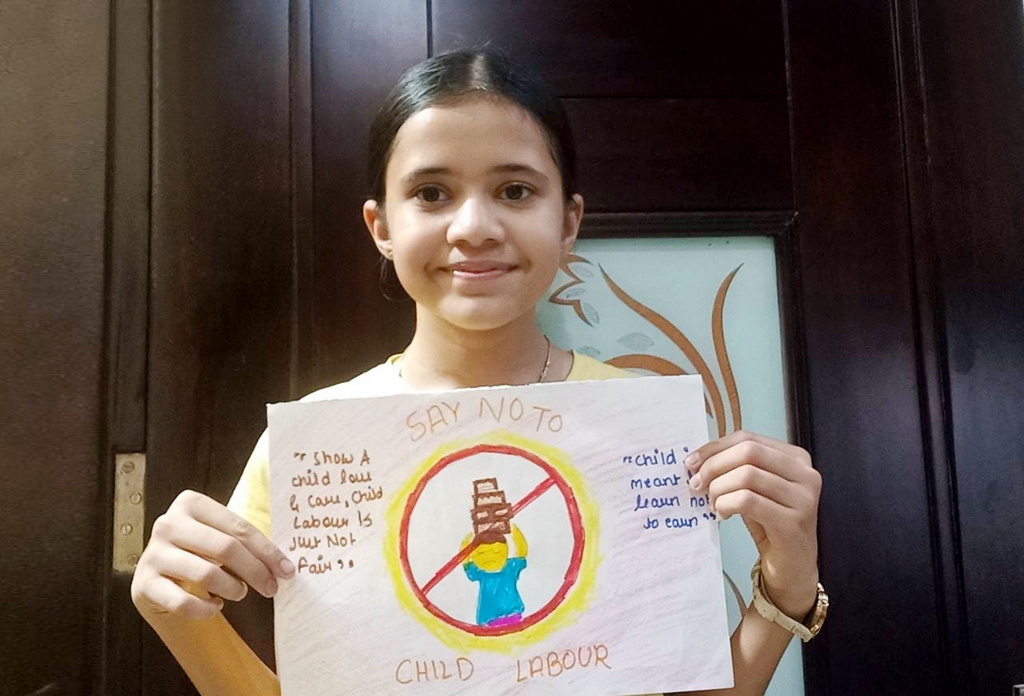 SAY NO TO
"Show A
child love
& care, Child
Labour Is
Just Not
Fair"
"child
meant
learn not
to earn"
CHILD LABOUR